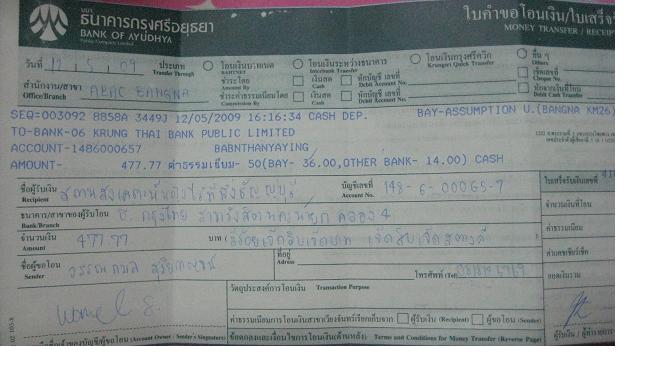 ธนาคารกรุงศรีอยุธยา
BANK OF AYUDHYA
Public Company Limited
ใบคำขอโอนเงิน/ใบเสร็จรั
MONEY TRANSFER / RECEIP
วันที่ 12 / 5 / 09 ประเภท Transfer Through โอนเงินบาทเนต BAHTNET โอนเงินระหว่างธนาคาร Interbank Transfer โอนเงินกรุงศรีควิก Krungsri Quick Transfer อื่น ๆ Others
สำนักงาน/สาขา Office/Branch ABAC BANGNA ชำระโดย Amount By เงินสด Cash หักบัญชี เลขที่ Debit Account No. เช็คเลขที่ Cheque No.
ค่าธรรมเนียมโดย Commission By เงินสด Cash หักบัญชี เลขที่ Debit Account No. หักจากเงินที่โอน Debit Cash Transfer
SEQ=003092 8858A 3449J 12/05/2009 16:16:34 CASH DEP. BAY-ASSUMPTION U.(BANGNA KM26)
TO-BANK-06 KRUNG THAI BANK PUBLIC LIMITED
ACCOUNT-1486000657 BABNTHANYAYING
AMOUNT- 477.77 ค่าธรรมเนียม- 50(BAY- 36.00,OTHER BANK- 14.00) CASH
ชื่อผู้รับเงิน Recipient บัญชีเลขที่ Account No. 148-6-00065-7
ธนาคาร/สาขาของผู้รับโอน Bank/Branch ธ. กรุงไทย คลอง 4
จำนวนเงิน Amount 477.77 บาท (สี่ร้อยเจ็ดสิบเจ็ดบาท เจ็ดสิบเจ็ดสตางค์
ชื่อผู้ขอโอน Sender ที่อยู่ Adress โทรศัพท์ (Tel)
วัตถุประสงค์การโอนเงิน Transaction Purpose
ค่าธรรมเนียมการโอนเงิน ผู้รับเงิน (Recipient) ผู้ขอโอน (Sender)
(Account Owner / Sender's Signature) ข้อตกลงและเงื่อนไขการโอนเงิน(ด้านหลัง) Terms and Conditions for Money Transfer (Reverse Page)
ใบเสร็จรับเงินเลขที่
จำนวนเงินที่โอน
ค่าธรรมเนียม
ยอดเงินรวม